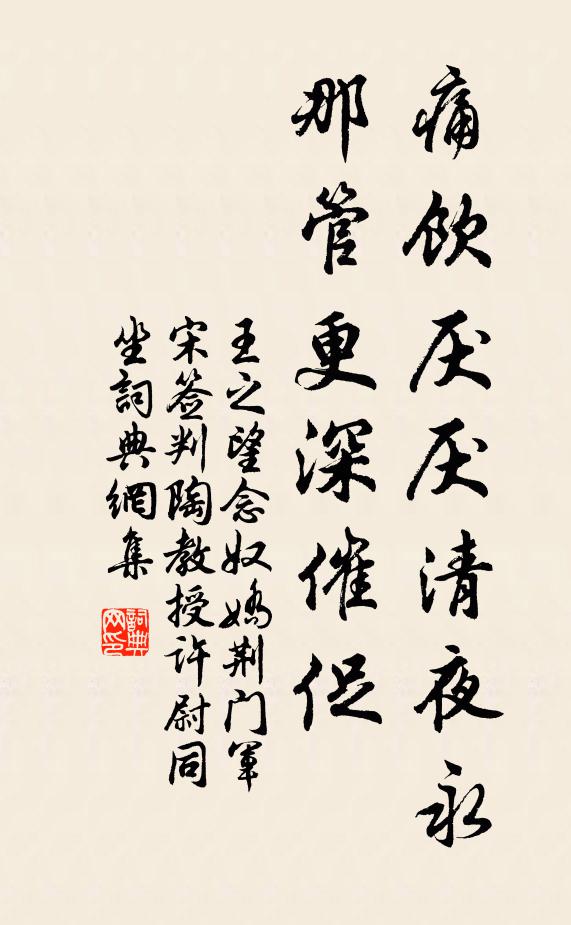 痛飲厌厌清夜永
那管更深催促
王之望念奴嬌荆门軍
宋簽判陶教授许尉同
坐詞典網集
詞典网印